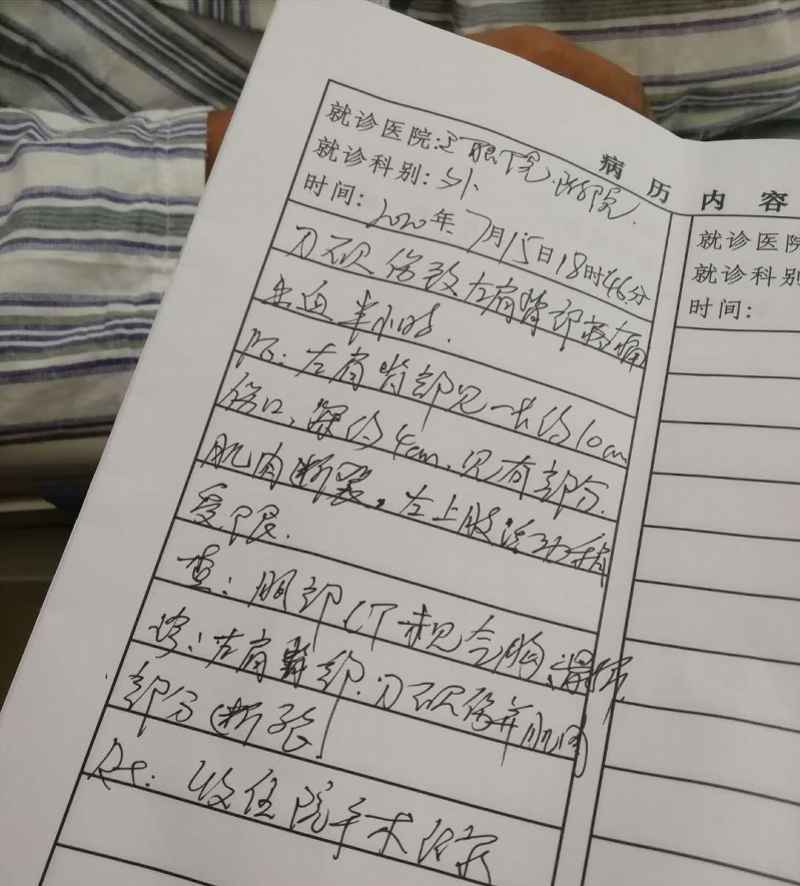 病历内容
就诊医院: 附院
就诊科别:外
时间:2020年7月15日18时46分
刀砍伤致左肩背部疼痛
出血半小时.
PE:左肩背部见一长约10cm
伤口,深约4cm,见有部分
肌肉断裂。左上肢活动稍
受限.
查:胸部CT未见气胸、
诊:左肩背部刀砍伤并肌肉
部分断裂
处:收住院手术
就诊医院
就诊科别
时间: